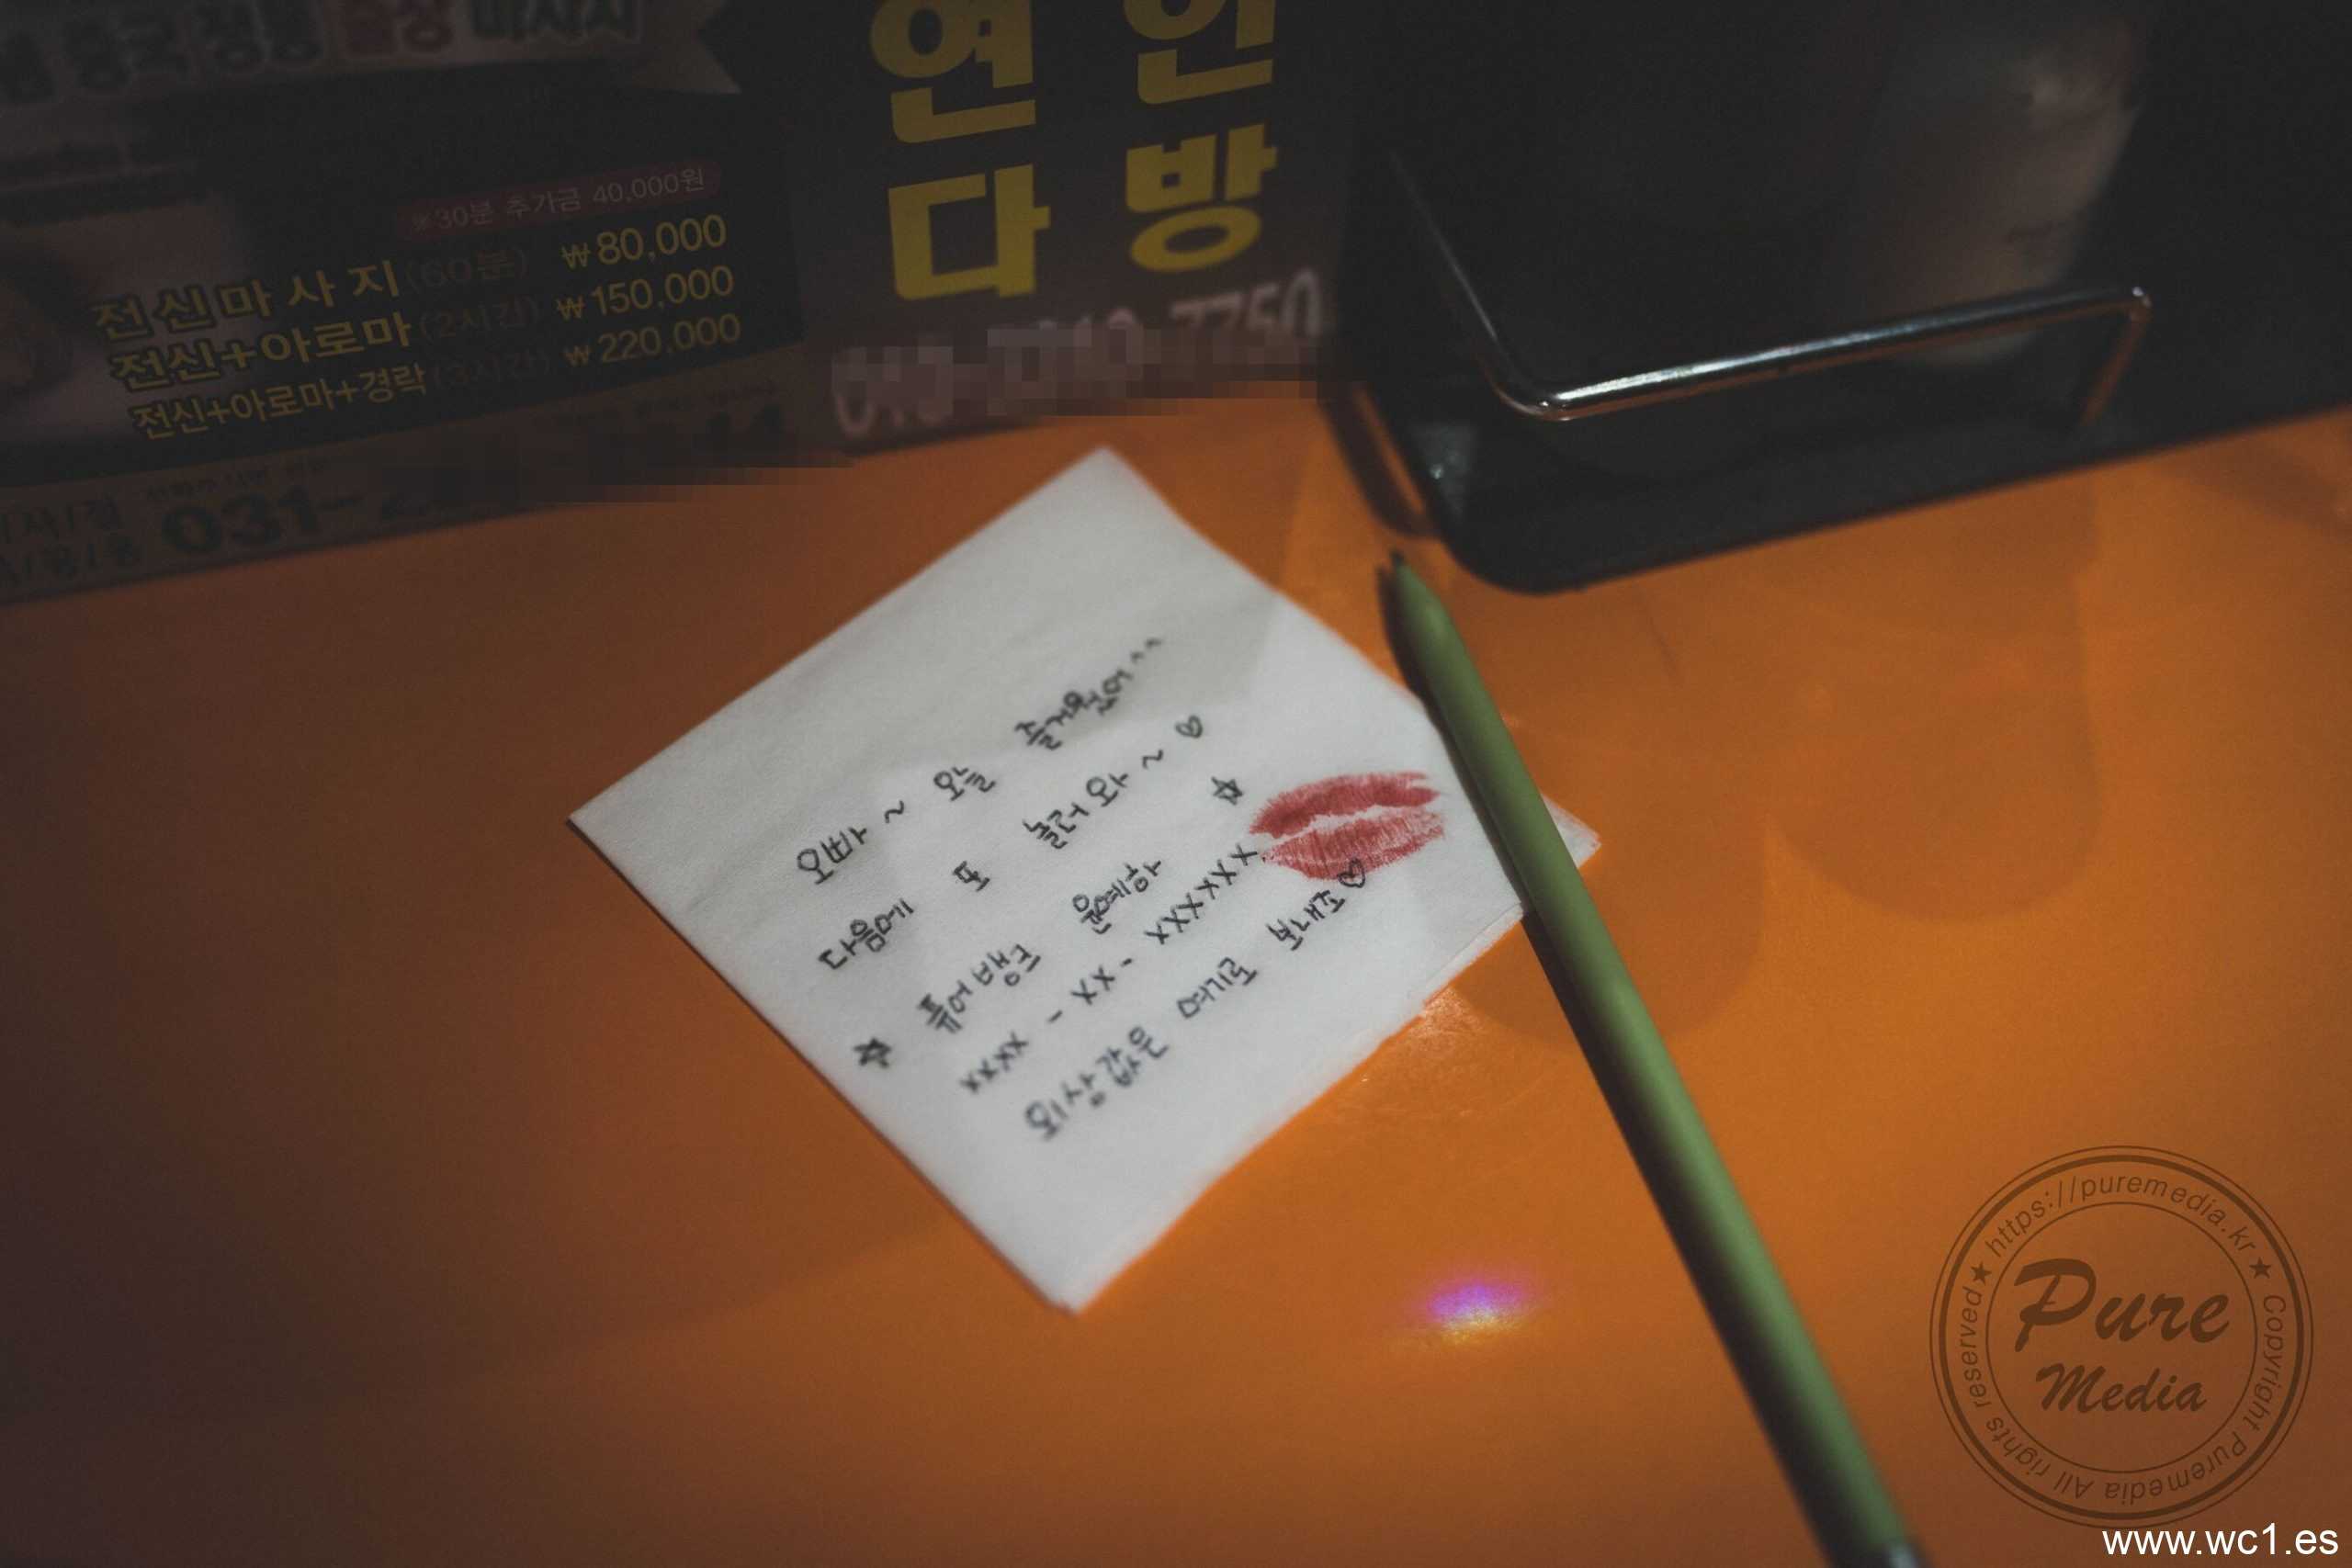 중국 정통 출장 마사지
※30분 추가금 40,000원
전신마사지(60분) ₩80,000
전신+아로마(2시간) ₩150,000
전신+아로마+경락(3시간) ₩220,000
031-2
연인
다방
오빠 ~ 오늘 즐거웠어^^
다음에 또 놀러와 ~ ♡
☆ 퓨어뱅크 윤예하 ☆
xxxx - xx - xxxxxxx
외상값은 여기로 보내죠♡
★ https://puremedia.kr ★ Copyright Puremedia All rights reserved
Pure
Media
www.wc1.es